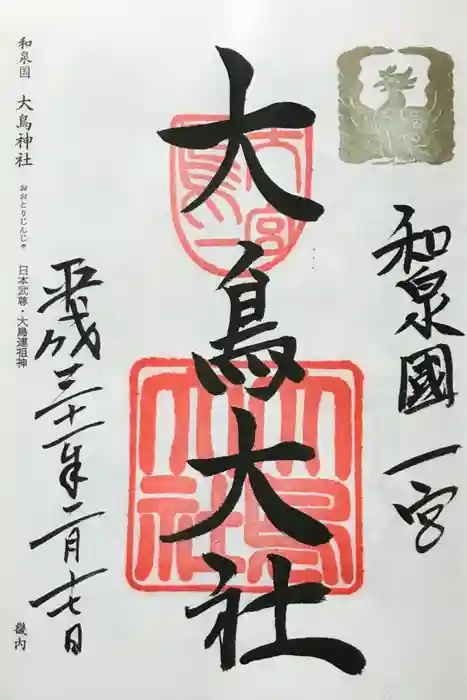 和泉國一宮
大鳥大社
平成三十一年二月七日
和泉国 大鳥神社 おおとりじんじゃ 日本武尊・大鳥連祖神 畿内